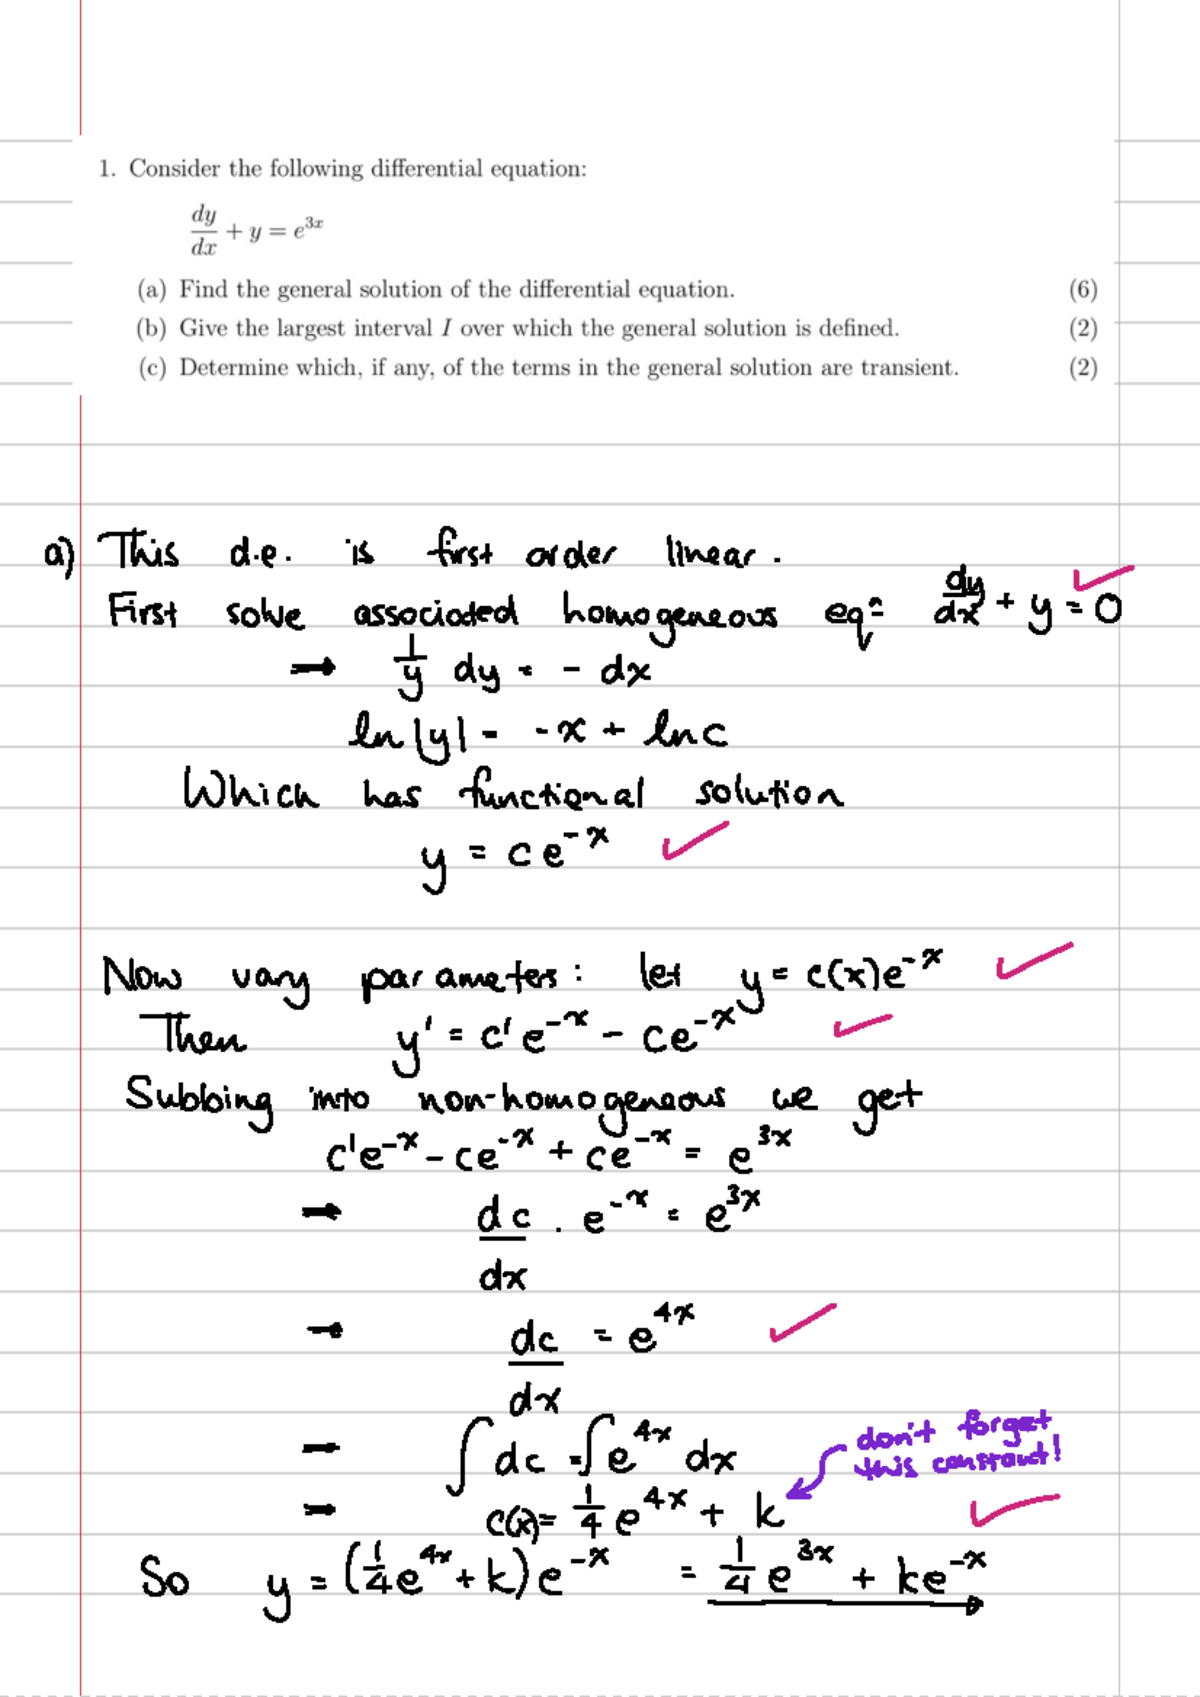 1. Consider the following differential equation:
dy/dx + y = e^{3x}
(a) Find the general solution of the differential equation. (6)
(b) Give the largest interval I over which the general solution is defined. (2)
(c) Determine which, if any, of the terms in the general solution are transient. (2)
a) This d.e. is first order linear.
First solve associated homogeneous eqⁿ dy/dx + y = 0 ✓
→ 1/y dy = - dx
ln|y| = -x + ln c
Which has functional solution
y = ce^{-x} ✓
Now vary parameters: let y = c(x)e^{-x} ✓
Then y' = c'e^{-x} - ce^{-x} ✓
Subbing into non-homogeneous we get
c'e^{-x} - ce^{-x} + ce^{-x} = e^{3x}
→ dc/dx . e^{-x} = e^{3x}
→ dc/dx = e^{4x} ✓
→ ∫ dc = ∫ e^{4x} dx
don't forget
this constant!
→ c(x) = 1/4 e^{4x} + k ✓
So y = (1/4 e^{4x} + k)e^{-x} = 1/4 e^{3x} + ke^{-x}